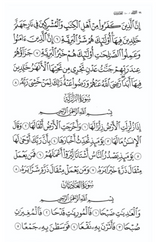 إِنَّ الَّذِينَ كَفَرُوا مِنْ أَهْلِ الْكِتَابِ وَالْمُشْرِكِينَ فِي نَارِ جَهَنَّمَ
خَالِدِينَ فِيهَا أُولَٰئِكَ هُمْ شَرُّ الْبَرِيَّةِ ۝ إِنَّ الَّذِينَ آمَنُوا
وَعَمِلُوا الصَّالِحَاتِ أُولَٰئِكَ هُمْ خَيْرُ الْبَرِيَّةِ ۝ جَزَاؤُهُمْ
عِندَ رَبِّهِمْ جَنَّاتُ عَدْنٍ تَجْرِي مِن تَحْتِهَا الْأَنْهَارُ خَالِدِينَ
فِيهَا أَبَدًا رَّضِيَ اللَّهُ عَنْهُمْ وَرَضُوا عَنْهُ ذَٰلِكَ لِمَنْ خَشِيَ رَبَّهُ ۝
سُورَةُ الزَّلْزَلَةِ
إِذَا زُلْزِلَتِ الْأَرْضُ زِلْزَالَهَا ۝ وَأَخْرَجَتِ الْأَرْضُ أَثْقَالَهَا ۝ وَقَالَ
الْإِنسَانُ مَا لَهَا ۝ يَوْمَئِذٍ تُحَدِّثُ أَخْبَارَهَا ۝ بِأَنَّ رَبَّكَ أَوْحَىٰ لَهَا
۝ يَوْمَئِذٍ يَصْدُرُ النَّاسُ أَشْتَاتًا لِّيُرَوْا أَعْمَالَهُمْ ۝ فَمَن يَعْمَلْ
مِثْقَالَ ذَرَّةٍ خَيْرًا يَرَهُ ۝ وَمَن يَعْمَلْ مِثْقَالَ ذَرَّةٍ شَرًّا يَرَهُ ۝
سُورَةُ الْعَادِيَاتِ
وَالْعَادِيَاتِ ضَبْحًا ۝ فَالْمُورِيَاتِ قَدْحًا ۝ فَالْمُغِيرَاتِ
صُبْحًا ۝ فَأَثَرْنَ بِهِ نَقْعًا ۝ فَوَسَطْنَ بِهِ جَمْعًا ۝